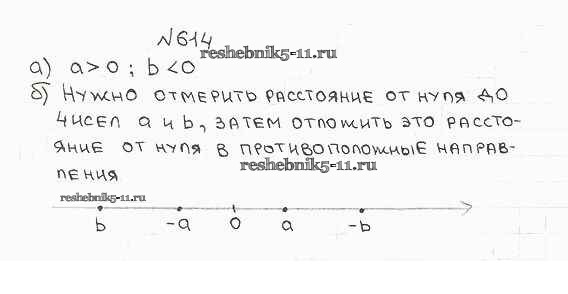 №614
reshebnik5-11.ru
а) a>0; b<0
б) Нужно отмерить расстояние от нуля до
чисел a и b, затем отложить это рассто-
яние от нуля в противоположные направ-
reshebnik5-11.ru
ления
reshebnik5-11.ru
b -a 0 a -b